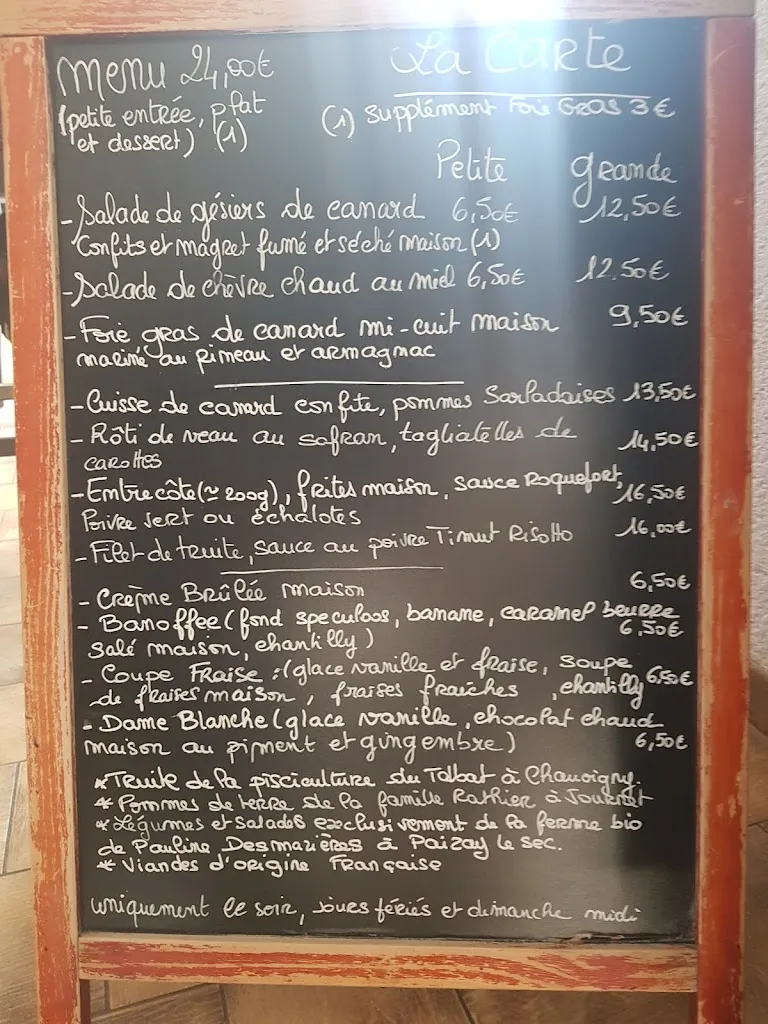 Menu 24,00€
La Carte
(petite entrée, plat
et dessert) (1)
(1) Supplément Foie Gras 3€
Petite grande
- Salade de gésiers de canard 6,50€ 12,50€
Confits et magret fumé et séché maison (1)
- Salade de chèvre chaud au miel 6,50€ 12.50€
- Foie gras de canard mi-cuit maison 9,50€
mariné au pineau et armagnac
- Cuisse de canard confite, pommes Sarladaises 13,50€
- Rôti de veau au safran, tagliatelles de 14,50€
carottes
- Entrecôte (≃ 200g), frites maison, sauce Roquefort, 16,50€
Poivre vert ou échalotes
- Filet de truite, sauce au poivre Timut Risotto 16,00€
- Crème Brûlée maison 6,50€
- Banoffee (fond speculoos, banane, caramel beurre
salé maison, chantilly) 6,50€
- Coupe Fraise : (glace vanille et fraise, soupe 6,50€
de fraises maison, fraises fraîches, chantilly
- Dame Blanche (glace vanille, chocolat chaud
maison au piment et gingembre) 6,50€
* Truite de la pisciculture du Talbat à Chauvigny.
* Pommes de terre de la famille Rathier à Journet
* Légumes et salades exclusivement de la ferme bio
de Pauline Desmazières à Paizay le sec.
* Viandes d'origine Française
uniquement le soir, jours fériés et dimanche midi